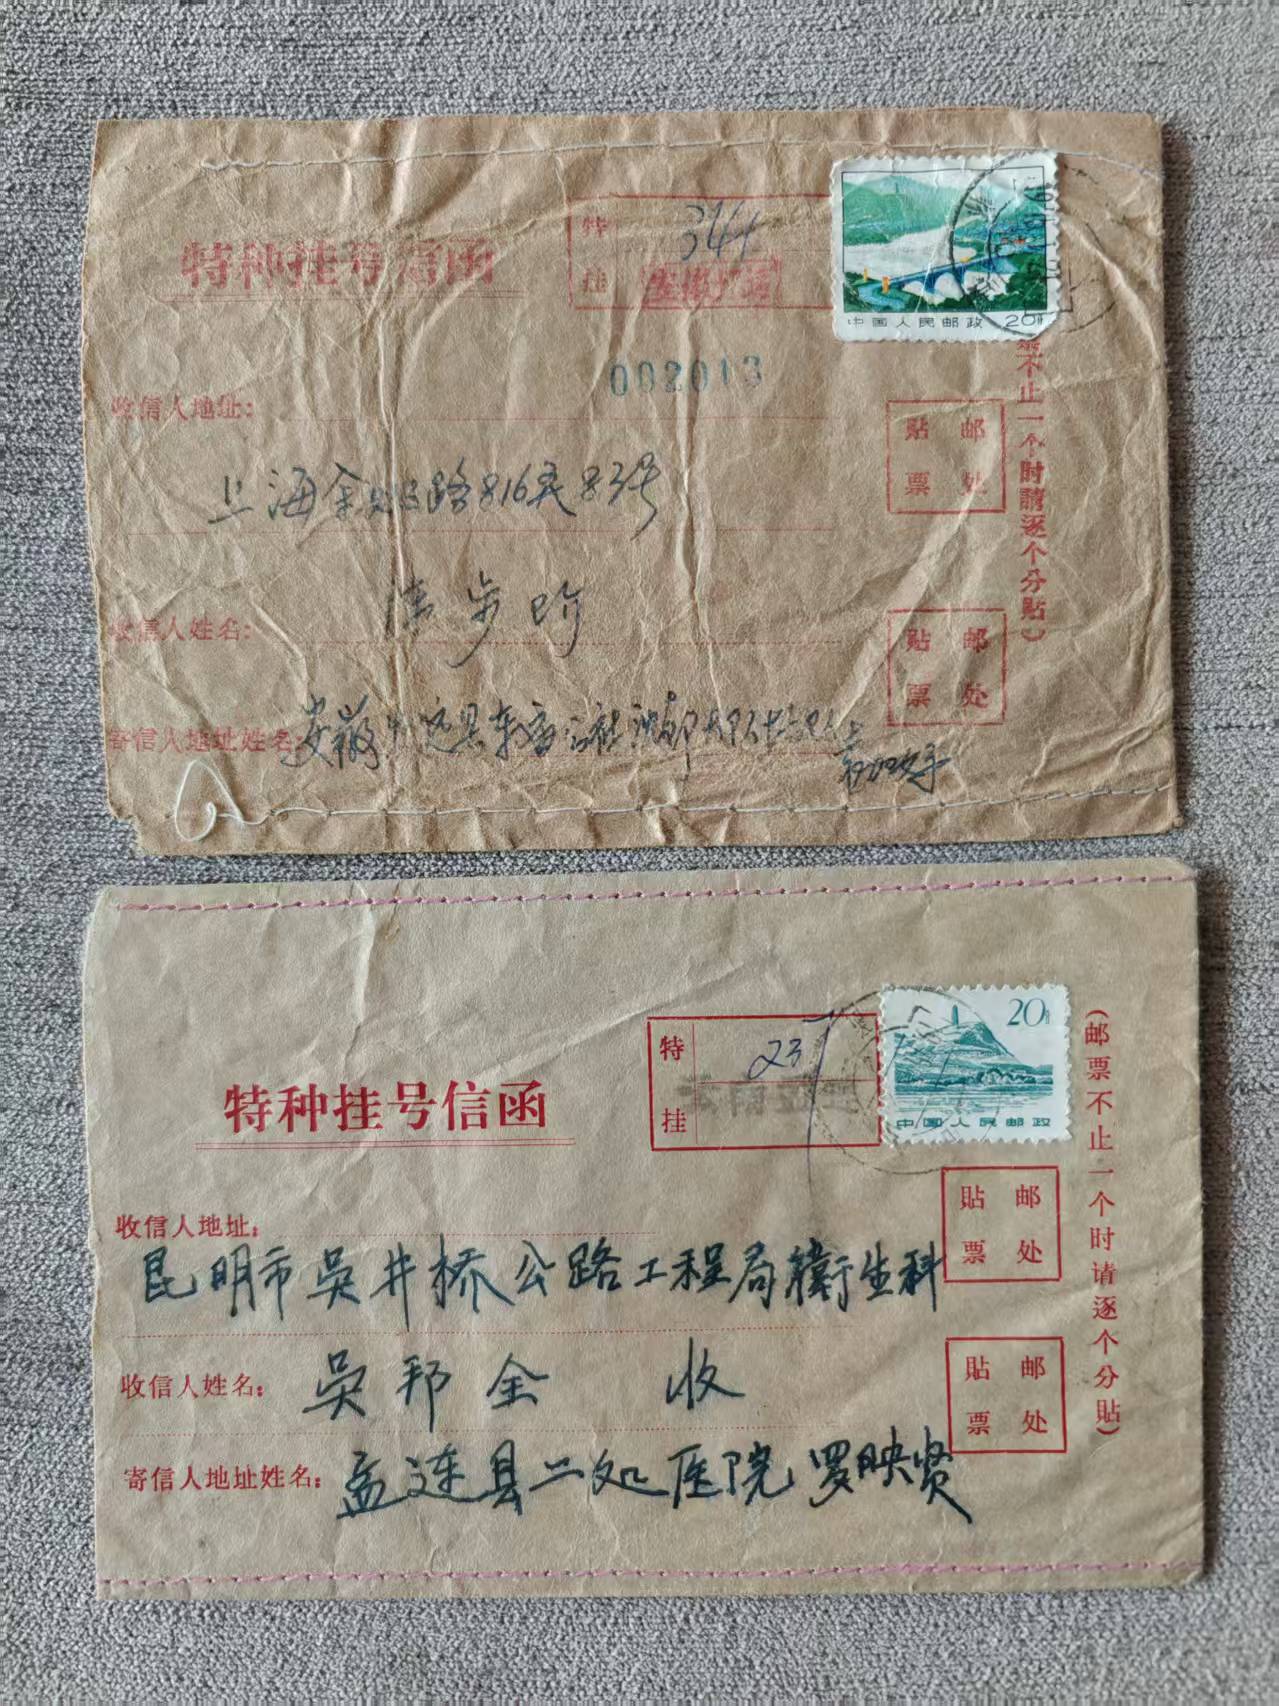 特种挂号信函
特 344
挂
中国人民邮政 20分
002013
票不止一个时请逐个分贴)
收信人地址:
上海余姚路816弄83号
贴 邮
票 处
收信人姓名:
贴 邮
票 处
寄信人地址姓名: 安徽定远县东
特种挂号信函
特 237
挂
20分
中国人民邮政
(邮票不止一个时请逐个分貼)
收信人地址:
昆明市吳井桥公路工程局衛生科
貼 邮
票 处
收信人姓名: 吳邦全 收
貼 邮
票 处
寄信人地址姓名: 孟连县二处医院罗映贤